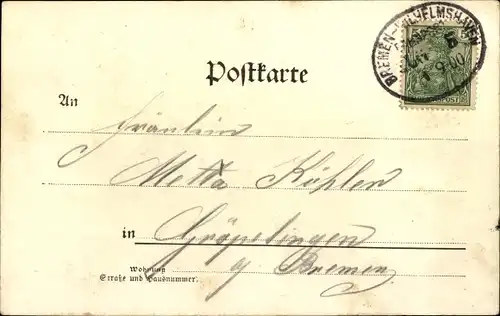 BREMEN-WILHELMSHAVEN
Postkarte
An
Fräulein
Metta Köhler
in Gröpelingen
b/ Bremen
Wohnung
Straße und Hausnummer.